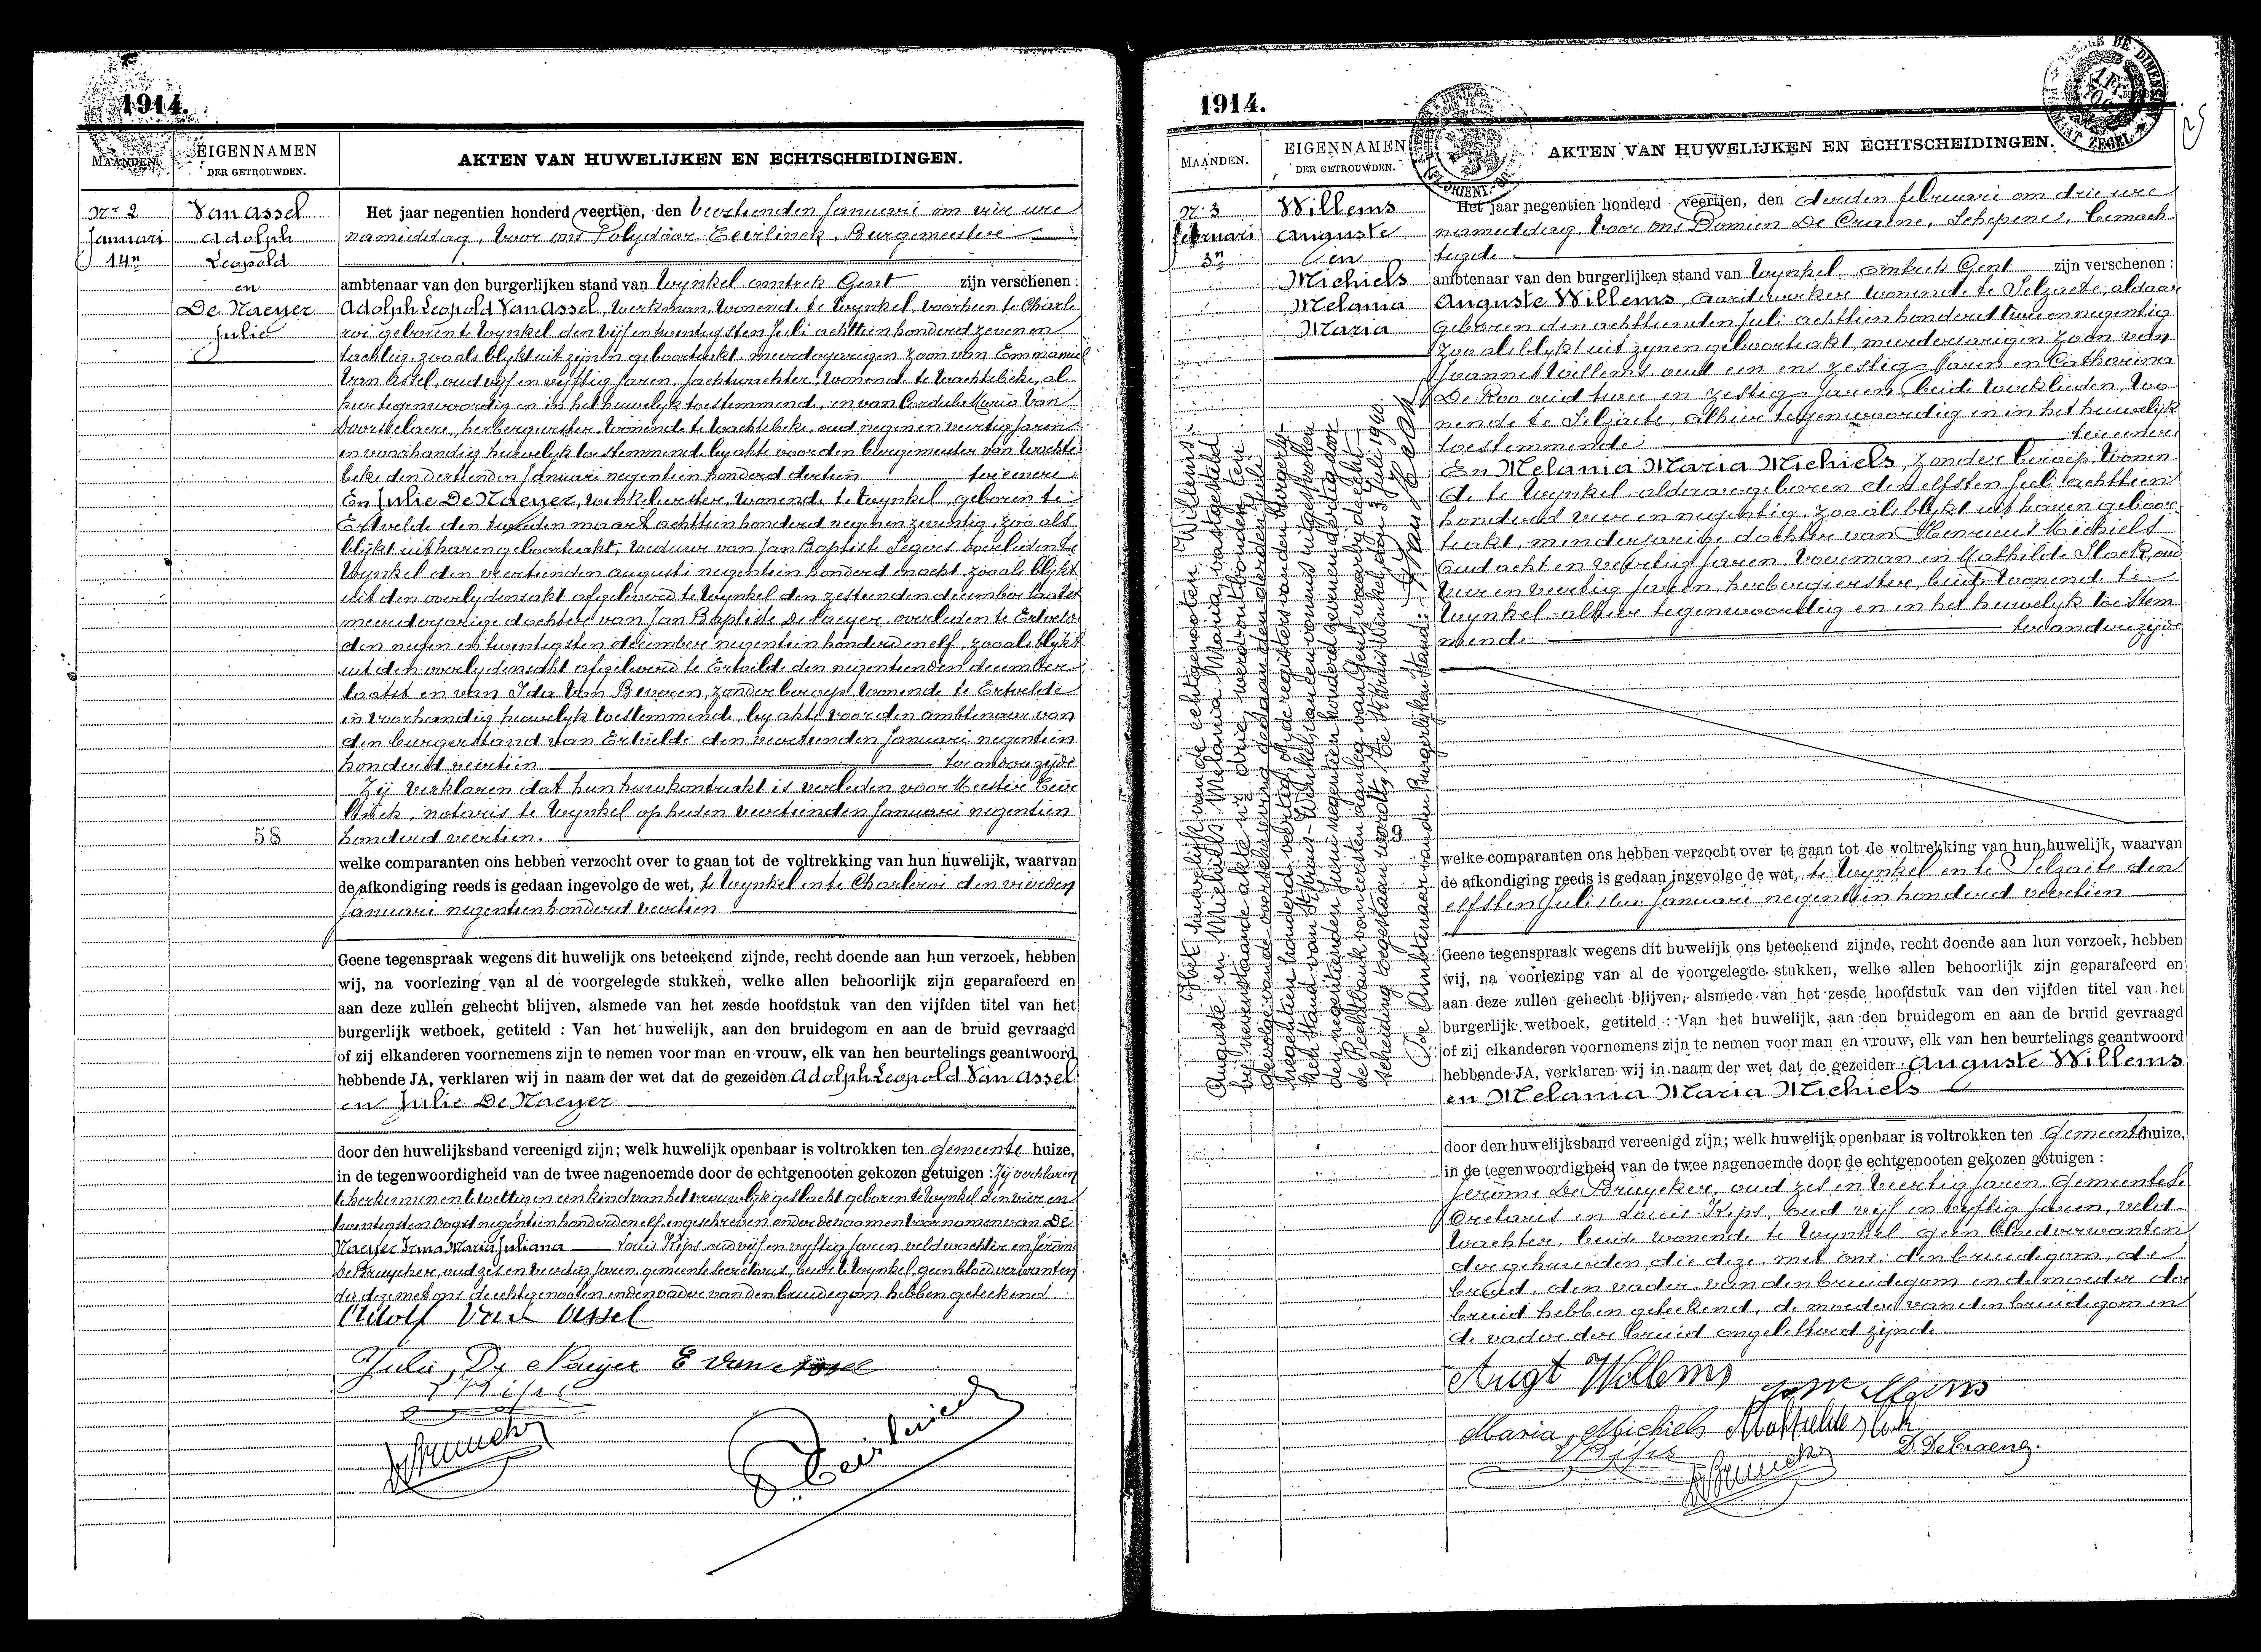 1914.
MAANDEN.
EIGENNAMEN
DER GETROUWDEN.
AKTEN VAN HUWELIJKEN EN ECHTSCHEIDINGEN.
Nr 2
Januari
14n
Van Assel
Adolph
Leopold
en
De Naeyer
Julie
58
Het jaar negentien honderd veertien, den veertienden Januari om vier ure
namiddag, voor ons Polydoor Eeerlinck, Burgemeester
ambtenaar van den burgerlijken stand van Wynkel omtrek Gent zijn verschenen :
Adolph Leopold Van Assel, werkman, wonende te Wynkel, voorheen te Charle
roi geboren te Wynkel den vijf en twentigsten Juli achttien honderd zeven en
tachtig, zooals blykt uit zijnen geboorteakt, meerderjarigen zoon van Emmanuel
Van Assel, oud vijf en vyftig jaren, jachtwachter, wonende te Wachtebeke, al
hier tegenwoordig en in het huwelijk toestemmend, en van Cordula Maria Van
herbergierster wonende te Wachtebeke, oud negen en veertig jaren
in voorhandig huwelyk toestemmend by akte voor den burgemeester van Wachte
beke den dertienden Januari negentien honderd dertien ter eenere
En Julie De Naeyer, wonende te Wynkel, geboren te
Ertvelde den tweeden maart achttien honderd negen en zeventig, zoo als
blijkt uit haren geboorteakt, weduwe van Jan Baptiste Segers overleden te
Wynkel den veertienden augusti negentien honderd en acht zooals blijkt
uit den overlydensakt afgeleverd te Wynkel den zestienden december laatst
meerderjarige dochter van Jan Baptiste De Naeyer overleden te Ertvelde
den negen en twentigsten december negentien honderd en elf, zooals blykt
uit den overlydensakt afgeleverd te Ertvelde den negentienden december
laatst en van Ida Van Beveren, zonder beroep wonende te Ertvelde
in voorhandig huwelyk toestemmend by akte voor den ambtenaar van
den burgerstand van Ertvelde den veertienden Januari negentien
honderd veertien ter andere zyde
Zij verklaren dat hun huwkontrakt is verleden voor Meester
notaris te Wynkel op heden veertienden Januari negentien
honderd veertien.
welke comparanten ons hebben verzocht over te gaan tot de voltrekking van hun huwelijk, waarvan
de afkondiging reeds is gedaan ingevolge de wet, te Wynkel en te Charleroi den vierden
Januari negentien honderd veertien
Geene tegenspraak wegens dit huwelijk ons beteekend zijnde, recht doende aan hun verzoek, hebben
wij, na voorlezing van al de voorgelegde stukken, welke allen behoorlijk zijn geparafeerd en
aan deze zullen gehecht blijven, alsmede van het zesde hoofdstuk van den vijfden titel van het
burgerlijk wetboek, getiteld : Van het huwelijk, aan den bruidegom en aan de bruid gevraagd
of zij elkanderen voornemens zijn te nemen voor man en vrouw, elk van hen beurtelings geantwoord
hebbende JA, verklaren wij in naam der wet dat de gezeiden Adolph Leopold Van Assel
en Julie De Naeyer
door den huwelijksband vereenigd zijn; welk huwelijk openbaar is voltrokken ten Gemeente huize,
in de tegenwoordigheid van de twee nagenoemde door de echtgenooten gekozen getuigen : Zij verklaren
te herkennen en te wettigen een kind van het vrouwelijk geslacht geboren te Wynkel den vier en
twentigsten oogst negentien honderd en elf, ingeschreven onder de naamen voornamen van De
Naeyer Irma Maria Juliana Louis Kips oud vijf en vyftig jaren, veldwachter en Jerôme
De Bruycker, oud zes en veertig jaren, gemeentesecretaris, beide te Wynkel, geen bloedverwanten
die deze met ons de echtgenooten en den vader van den bruidegom hebben geteekend
Adolf Van Assel
Julie De Naeijer E Van Assel
L Kips
De Bruycker
Eeerlinck
1914.
MAANDEN.
EIGENNAMEN
DER GETROUWDEN.
AKTEN VAN HUWELIJKEN EN ECHTSCHEIDINGEN.
Nr 3
februari
3n
Willems
Auguste
en
Michiels
Melania
Maria
Het huwelijk van de echtgenooten Willems
Auguste en Michiels Melania Maria, vastgesteld
bij nevenstaande akte nr drie, werd ontbonden ten
gevolge van de overschrijving gedaan den derden Juli
negentien honderd veertig, op de registers van den burgerlij-
ken stand van St Kruis-Winkel, van een vonnis uitgesproken
den negentienden Juni negentien honderd zeven en dertig door
de Rechtbank van eersten aanleg van Gent, waarbij de echt-
scheiding toegestaan wordt. Te St Kruis Winkel, den 3 Juli 1940.
De Ambtenaar van den Burgerlijken Stand:
Het jaar negentien honderd veertien, den derden februari om drie ure
namiddag voor ons Domien De Craene, Schepene, bemach
tigde
ambtenaar van den burgerlijken stand van Wynkel omtrek Gent zijn verschenen :
Auguste Willems, aardewerker wonende te Selzaete, aldaar
geboren den achttienden Juli achttien honderd twee en negentig
zoo als blykt uit zynen geboorteakt, meerderjarigen zoon van
Joannes Willems oud een en zestig jaren en Catharina
De Roo oud twee en zestig jaren, beide werklieden, wo
nende te Selzaete, alhier tegenwoordig en in het huwelijk
toestemmende ter eenere
En Melania Maria Michiels, zonder beroep, wonen
de te Wynkel, aldaar geboren den elfsten Juli achttien
honderd vier en negentig zooals blykt uit haren geboor
teakt, minderjarige dochter van Henricus Michiels
oud acht en veertig jaren, voerman en Mathilde Slock, oud
vier en veertig jaren herbergierster, beide wonende te
Wynkel alhier tegenwoordig en in het huwelyk toestem
mende ter andere zyde
9
welke comparanten ons hebben verzocht over te gaan tot de voltrekking van hun huwelijk, waarvan
de afkondiging reeds is gedaan ingevolge de wet, te Wynkel en te Selzaete den
elfsten Januari negentien honderd veertien
Geene tegenspraak wegens dit huwelijk ons beteekend zijnde, recht doende aan hun verzoek, hebben
wij, na voorlezing van al de voorgelegde stukken, welke allen behoorlijk zijn geparafeerd en
aan deze zullen gehecht blijven, alsmede van het zesde hoofdstuk van den vijfden titel van het
burgerlijk wetboek, getiteld : Van het huwelijk, aan den bruidegom en aan de bruid gevraagd
of zij elkanderen voornemens zijn te nemen voor man en vrouw, elk van hen beurtelings geantwoord
hebbende JA, verklaren wij in naam der wet dat de gezeiden Auguste Willems
en Melania Maria Michiels
door den huwelijksband vereenigd zijn; welk huwelijk openbaar is voltrokken ten Gemeente huize,
in de tegenwoordigheid van de twee nagenoemde door de echtgenooten gekozen getuigen :
Jerôme De Bruycker, oud zes en veertig jaren Gemeentese
cretaris en Louis Kips, oud vijf en vyftig jaren, veld
wachter, beide wonende te Wynkel geen bloedverwanten
der gehuwden, die deze met ons, den bruidegom, de
bruid, den vader van den bruidegom en de moeder der
bruid hebben geteekend, de moeder van den bruidegom en
de vader der bruid ongeletterd zijnde.
Augt Willems
Maria Michiels Mathilde Slock
L Kips
De Bruycker
D. De Craene.